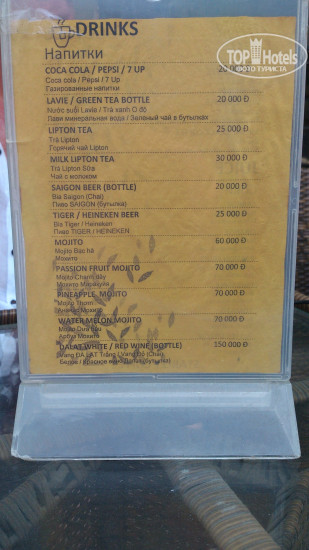 TOP Hotels
ФОТО ТУРИСТА
DRINKS
Напитки
COCA COLA / PEPSI / 7 UP
Coca cola / Pepsi / 7 Up
Газированные напитки
LAVIE / GREEN TEA BOTTLE 20 000 Đ
Nước suối Lavie / Trà xanh O độ
Лави минеральная вода / Зеленый чай в бутылках
LIPTON TEA 25 000 Đ
Trà Lipton
Горячий чай Lipton
MILK LIPTON TEA 30 000 Đ
Trà Lipton Sữa
Чай с молоком
SAIGON BEER (BOTTLE) 20 000 Đ
Bia Saigon (Chai)
Пиво SAIGON (бутылка)
TIGER / HEINEKEN BEER 25 000 Đ
Bia Tiger / Heineken
Пиво TIGER / HEINEKEN
MOJITO 60 000 Đ
Mojito Bạc hà
Мохито
PASSION FRUIT MOJITO 70 000 Đ
Mojito Chanh dây
Мохито Маракуйя
PINEAPPLE MOJITO 70 000 Đ
Mojito Thơm
Мохито
WATER MELON MOJITO 70 000 Đ
Mojito Dưa hấu
Арбуз Мохито
DALAT WHITE / RED WINE (BOTTLE) 150 000 Đ
Vang ĐÀ LẠT Trắng / Vang Đỏ (Chai)
Белое / Красное вино